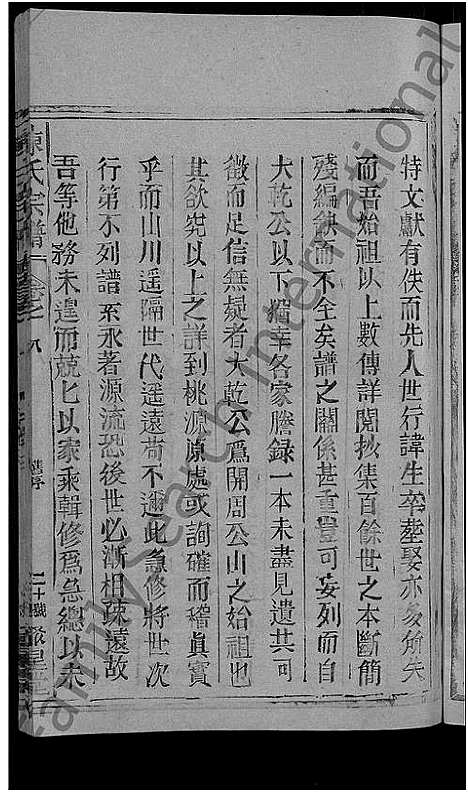 特文獻有佚而先人世行諱生卒塟娶亦多所失
而吾始祖以上數傳詳閱抄集百餘世之本斷簡
殘編缺而不全矣譜之關係甚重豈可妄列而自
大乾公以下獨幸各家謄錄一本未盡見遺其可
徵而足信無疑者大乾公爲開周公山之始祖也
其欲究以上之詳到桃源原處或詢確而稽眞實
乎而山川遥隔世代遥遠苟不邇此急修將世次
行第不列譜系永著源流恐後世必漸相疎遠故
吾等他務未遑而兢匕以家乘輯修爲急總以未
陳氏宗譜
卷之
八
Family Search International